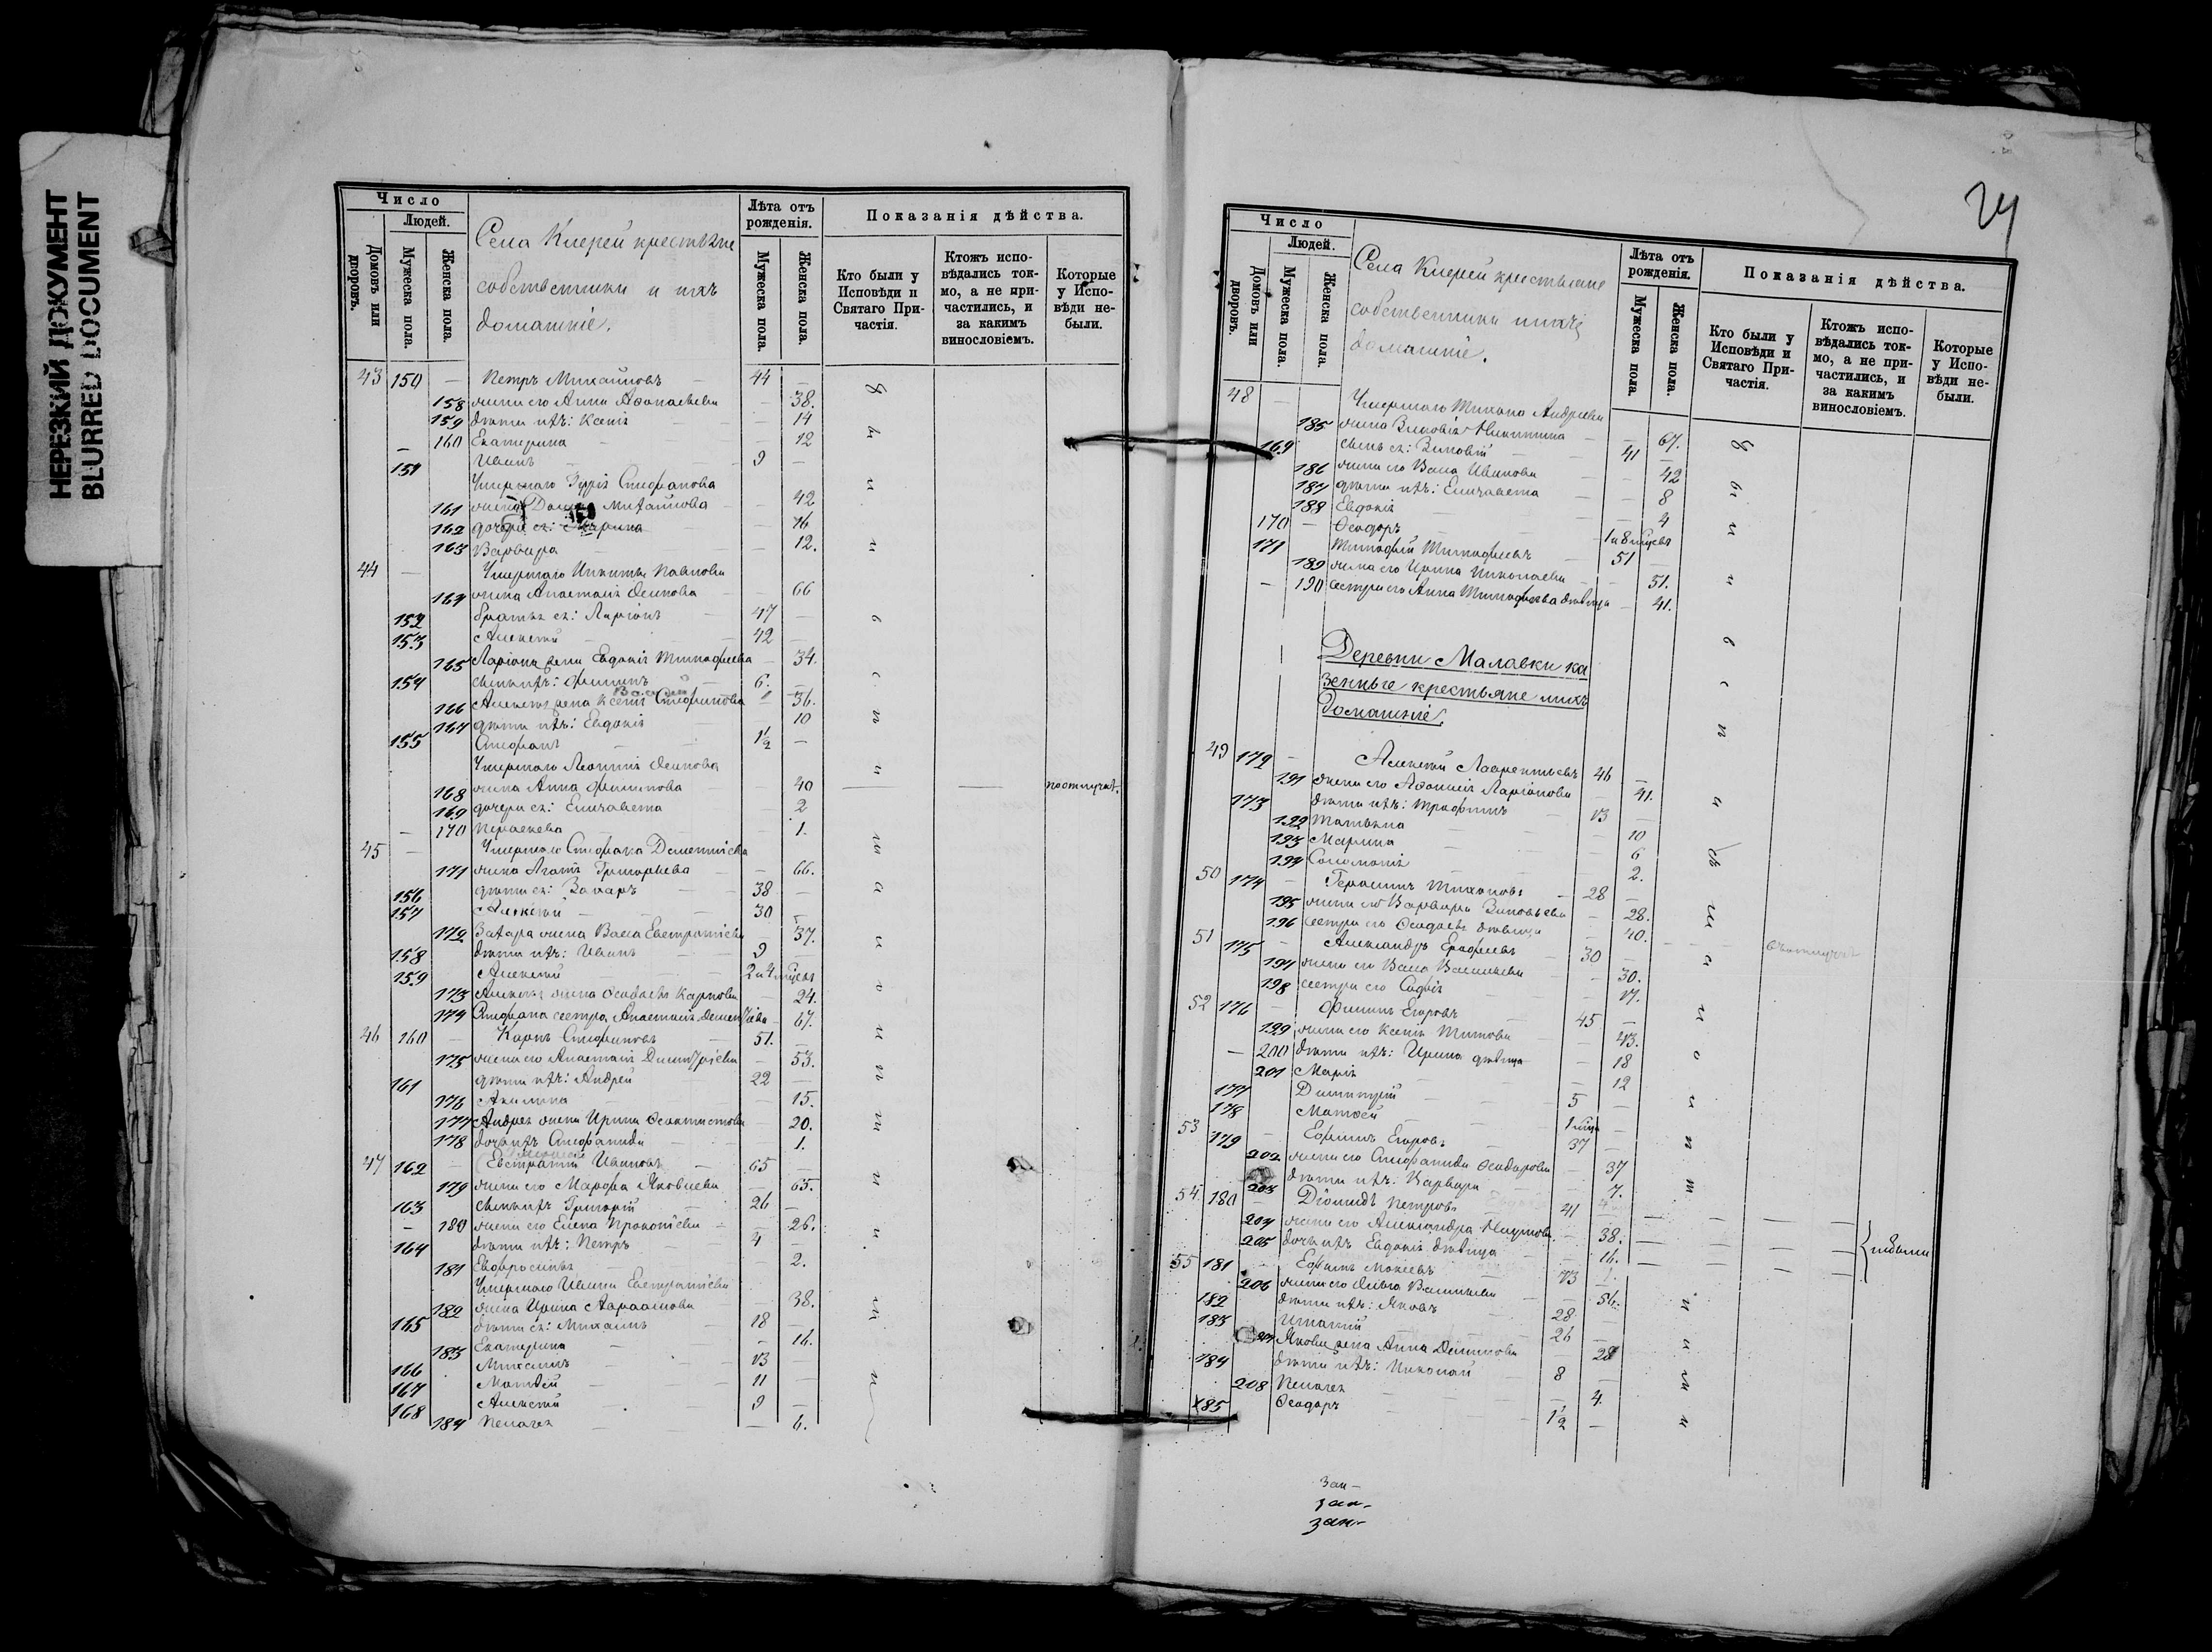 НЕРЕЗКИЙ ДОКУМЕНТ
BLURRED DOCUMENT
Число
Людей.
Домовъ или дворовъ.
Мужеска пола.
Женска пола.
крестьяне
собственники и ихъ
домашніе.
Лѣта отъ рожденія.
Мужеска пола.
Женска пола.
Показанія дѣйства.
Кто были у Исповѣди и Святаго Причастія.
Ктожъ исповѣдались токмо, а не причастились, и за какимъ винословіемъ.
Которые у Исповѣди небыли.
43 150 — Петръ Михайловъ — 44 —
158 жена его Анна — 38.
159 дѣти ихъ: Ксенія — 14
160 Екатерина — 12
151 Иванъ — 9 —
Умершаго Стефанова
161 жена Михайлова — 42
162 дочери ея: Марина — 16
163 Варвара — 12.
44 — Умершаго Никиты Павлова
164 жена Анастасія Осипова — 66
152 братья ея: Ларіонъ — 47 —
153 Алексѣй — 42 —
165 Ларіона жена Евдокія Тимофеева — 34.
154 сынъ ихъ: Филиппъ — 6. —
166 Алексѣя жена Ксенія Стефанова — 36.
167 дѣти ихъ: Евдокія — 10
155 Стефанъ — 1½ —
Умершаго Леонтія Осипова
168 жена Анна Филипова — 40 — —
169 дочери ея: Елизавета — 2
170 Параскева — 1.
45 — Умершаго Стефана Дементіева
171 жена Агафія Григорьева — 66.
156 дѣти ея: Захаръ — 38 —
157 Алексѣй — 30 —
172 Захара жена Васса Евстратіева — 37.
158 дѣти ихъ: Иванъ — 9 —
159 Алексѣй 2 и 4 мѣсяц
173 Алексѣя жена Ѳеодосія Карпова — 24.
174 Стефана сестра Анастасія Дементіева — 67.
46 160 — Карпъ Стефановъ — 51. —
175 жена его Анастасія Димитріева — 53.
161 дѣти ихъ: Андрей 22 —
176 Акилина — 15.
177 Андрея жена Ирина Ѳеоктистова — 20.
178 дочь ихъ Стефанида — 1.
47 162 — Евстратій Ивановъ — 65 —
179 жена его Марфа Яковлева — 65.
163 сынъ ихъ Григорій — 26 —
180 жена его Елена Прокопіева — 26.
164 дѣти ихъ: Петръ — 4 —
181 Евфросинья — 2.
Умершаго Ивана Евстратіева
182 жена Ирина Авраамова — 38.
165 дѣти ея: Михаилъ — 18 —
183 Екатерина — 16.
166 Михаилъ — 13 —
167 Матвей — 11 —
168 Алексѣй — 9 —
184 Пелагея — 6.
24
Число
Людей.
Домовъ или дворовъ.
Мужеска пола.
Женска пола.
крестьяне
собственники и ихъ
домашніе.
Лѣта отъ рожденія.
Мужеска пола.
Женска пола.
Показанія дѣйства.
Кто были у Исповѣди и Святаго Причастія.
Ктожъ исповѣдались токмо, а не причастились, и за какимъ винословіемъ.
Которые у Исповѣди небыли.
48 — Умершаго Тихона Андреева
185 жена Зиновія Никитина — 67.
169 сынъ ея: Зиновій — 41 —
186 жена его Васса Иванова — 42
187 дѣти ихъ: Елизавета — 8
188 Евдокія — 4
170 — Ѳеодоръ — 1 и 8 мѣсяц
171 Тимофей Тимофеевъ 51 —
189 жена его Ирина Николаева — 51.
190 сестра его Анна Тимофеева дѣвица — 41.
Деревни Малавки ка
зенные крестьяне и ихъ
домашніе.
49 172 — Алексѣй Лаврентьевъ 46 —
191 жена его Ларіонова — 41.
173 дѣти ихъ: Трофимъ — 13 —
192 Татьяна — 10
193 Марина — 6
194 Соломонія — 2.
50 174 — Герасимъ Тихоновъ — 28 —
195 жена его Варвара Зиновьева — 28.
196 сестра его Ѳеодосія дѣвица — 40.
51 175 — Александръ Ерофеевъ — 30 —
197 жена его Васса Васильева — 30.
198 сестра его Софія — 17.
52 176 — Филипъ Егоровъ — 45 —
199 жена его Ксенія Титова — 43.
200 дѣти ихъ: Ирина дѣвица — 18
201 Марія — 12
177 Димитрій — 5 —
178 Матвей — 1
53 179 — Ефимъ Егоровъ 37 —
202 жена его Стефанида Ѳеодорова — 37
203 дѣти ихъ: Варвара — 7.
54 180 — Діомидъ Петровъ 41 —
204 жена его Александра Наумова — 38.
205 дочь ихъ Евдокія дѣвица — 16.
небыли
55 181 — Ефимъ Моисеевъ 73
206 жена его Ольга Васильева — 56.
182 дѣти ихъ: Яковъ — 28 —
183 Игнатій — 26 —
207 Якова жена Анна Данилова — 28
184 дѣти ихъ: Николай — 8 —
208 Пелагея — 4.
185 Ѳеодоръ — 1½ —
зан-
зан-
зан-